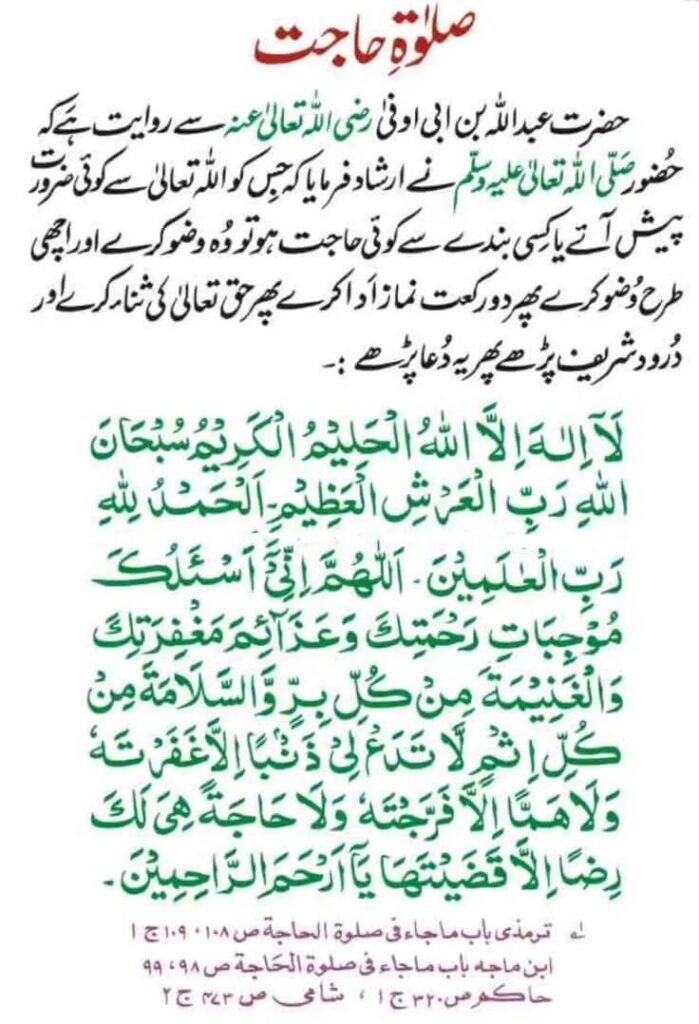 صلوٰۃِ حاجت
حضرت عبداللہ بن ابی اوفیٰ رضی اللہ تعالیٰ عنہ سے روایت ہے کہ
حُضور صَلَّی اللہ تعالیٰ علیہ وسلّم نے ارشاد فرمایا کہ جِس کو اللہ تعالیٰ سے کوئی ضرورت
پیش آئے یا کِسی بندے سے کوئی حاجت ہو تو وُہ وضو کرے اور اچھی
طرح وُضو کرے پھر دو رکعت نماز اَدا کرے پھر حق تعالیٰ کی ثناء کرے اور
دُرود شریف پڑھے پھر یہ دُعا پڑھے :-
لَآ اِلٰهَ اِلَّا اللهُ الْحَلِيْمُ الْكَرِيْمُ سُبْحَانَ
اللهِ رَبِّ الْعَرْشِ الْعَظِيْمِ۔ اَلْحَمْدُ لِلّٰهِ
رَبِّ الْعٰلَمِيْنَ۔ اَللّٰهُمَّ اِنِّيْٓ اَسْئَلُكَ
مُوْجِبَاتِ رَحْمَتِكَ وَعَزَآئِمَ مَغْفِرَتِكَ
وَالْغَنِيْمَةَ مِنْ كُلِّ بِرٍّ وَّالسَّلَامَةَ مِنْ
كُلِّ اِثْمٍ لَّا تَدَعْ لِيْ ذَنْۢبًا اِلَّا غَفَرْتَهٗ
وَلَا هَمًّا اِلَّا فَرَّجْتَهٗ وَلَا حَاجَةً هِىَ لَكَ
رِضًا اِلَّا قَضَيْتَهَا يَآ اَرْحَمَ الرَّاحِمِيْنَ۔
لہ ترمذی باب ماجاء فی صلوة الحاجة ص ۱۰۸، ۱۰۹ ج ۱
ابن ماجه باب ماجاء فی صلوة الحَاجة ص ۹۸، ۹۹
حاکم ص ۳۲۰ ج ۱ ، شامی ص ۴۷۳ ج ۲